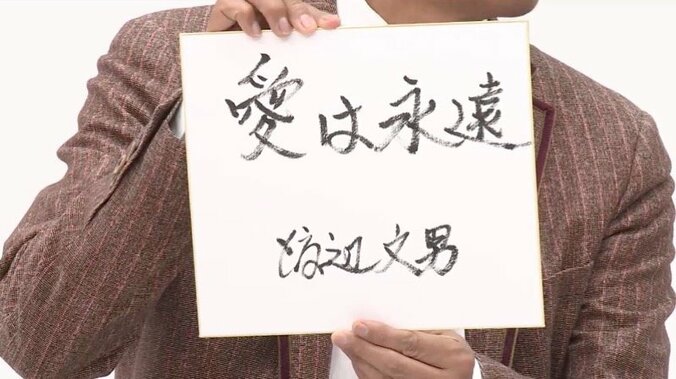 愛は永遠
渡辺文男